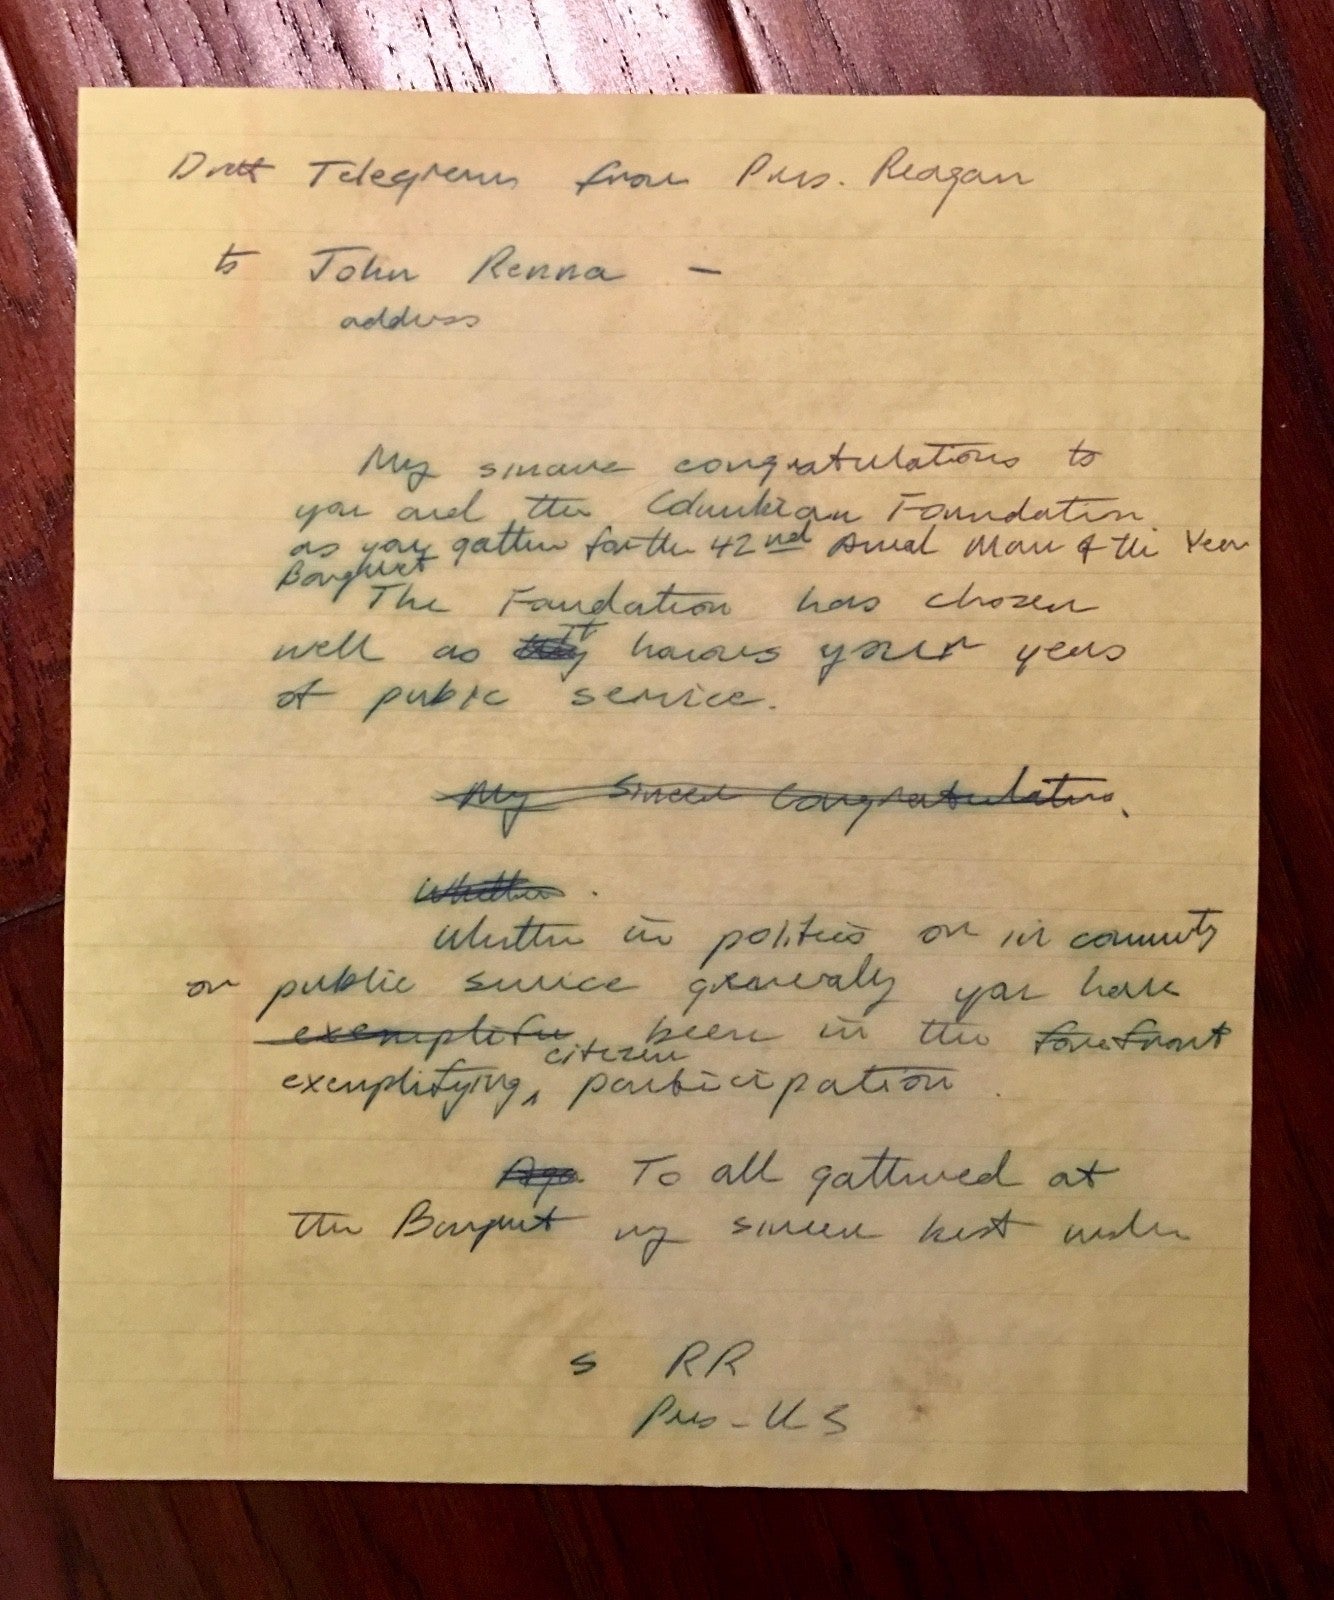 Draft Telegram from Pres. Reagan
to John Renna -
address
My sincere congratulations to
you and the Columbian Foundation.
as you gather for the 42nd Annual Man of the Year
Banquet
The Foundation has chosen
well as it honors your years
of public service.
My Sincere Congratulations.
Whether .
Whether in politics or in community
or public service generally you have
exemplified been in the forefront
citizen
exemplifying, participation.
To all gathered at
the Banquet my sincere best wishes
s RR
Pres - US